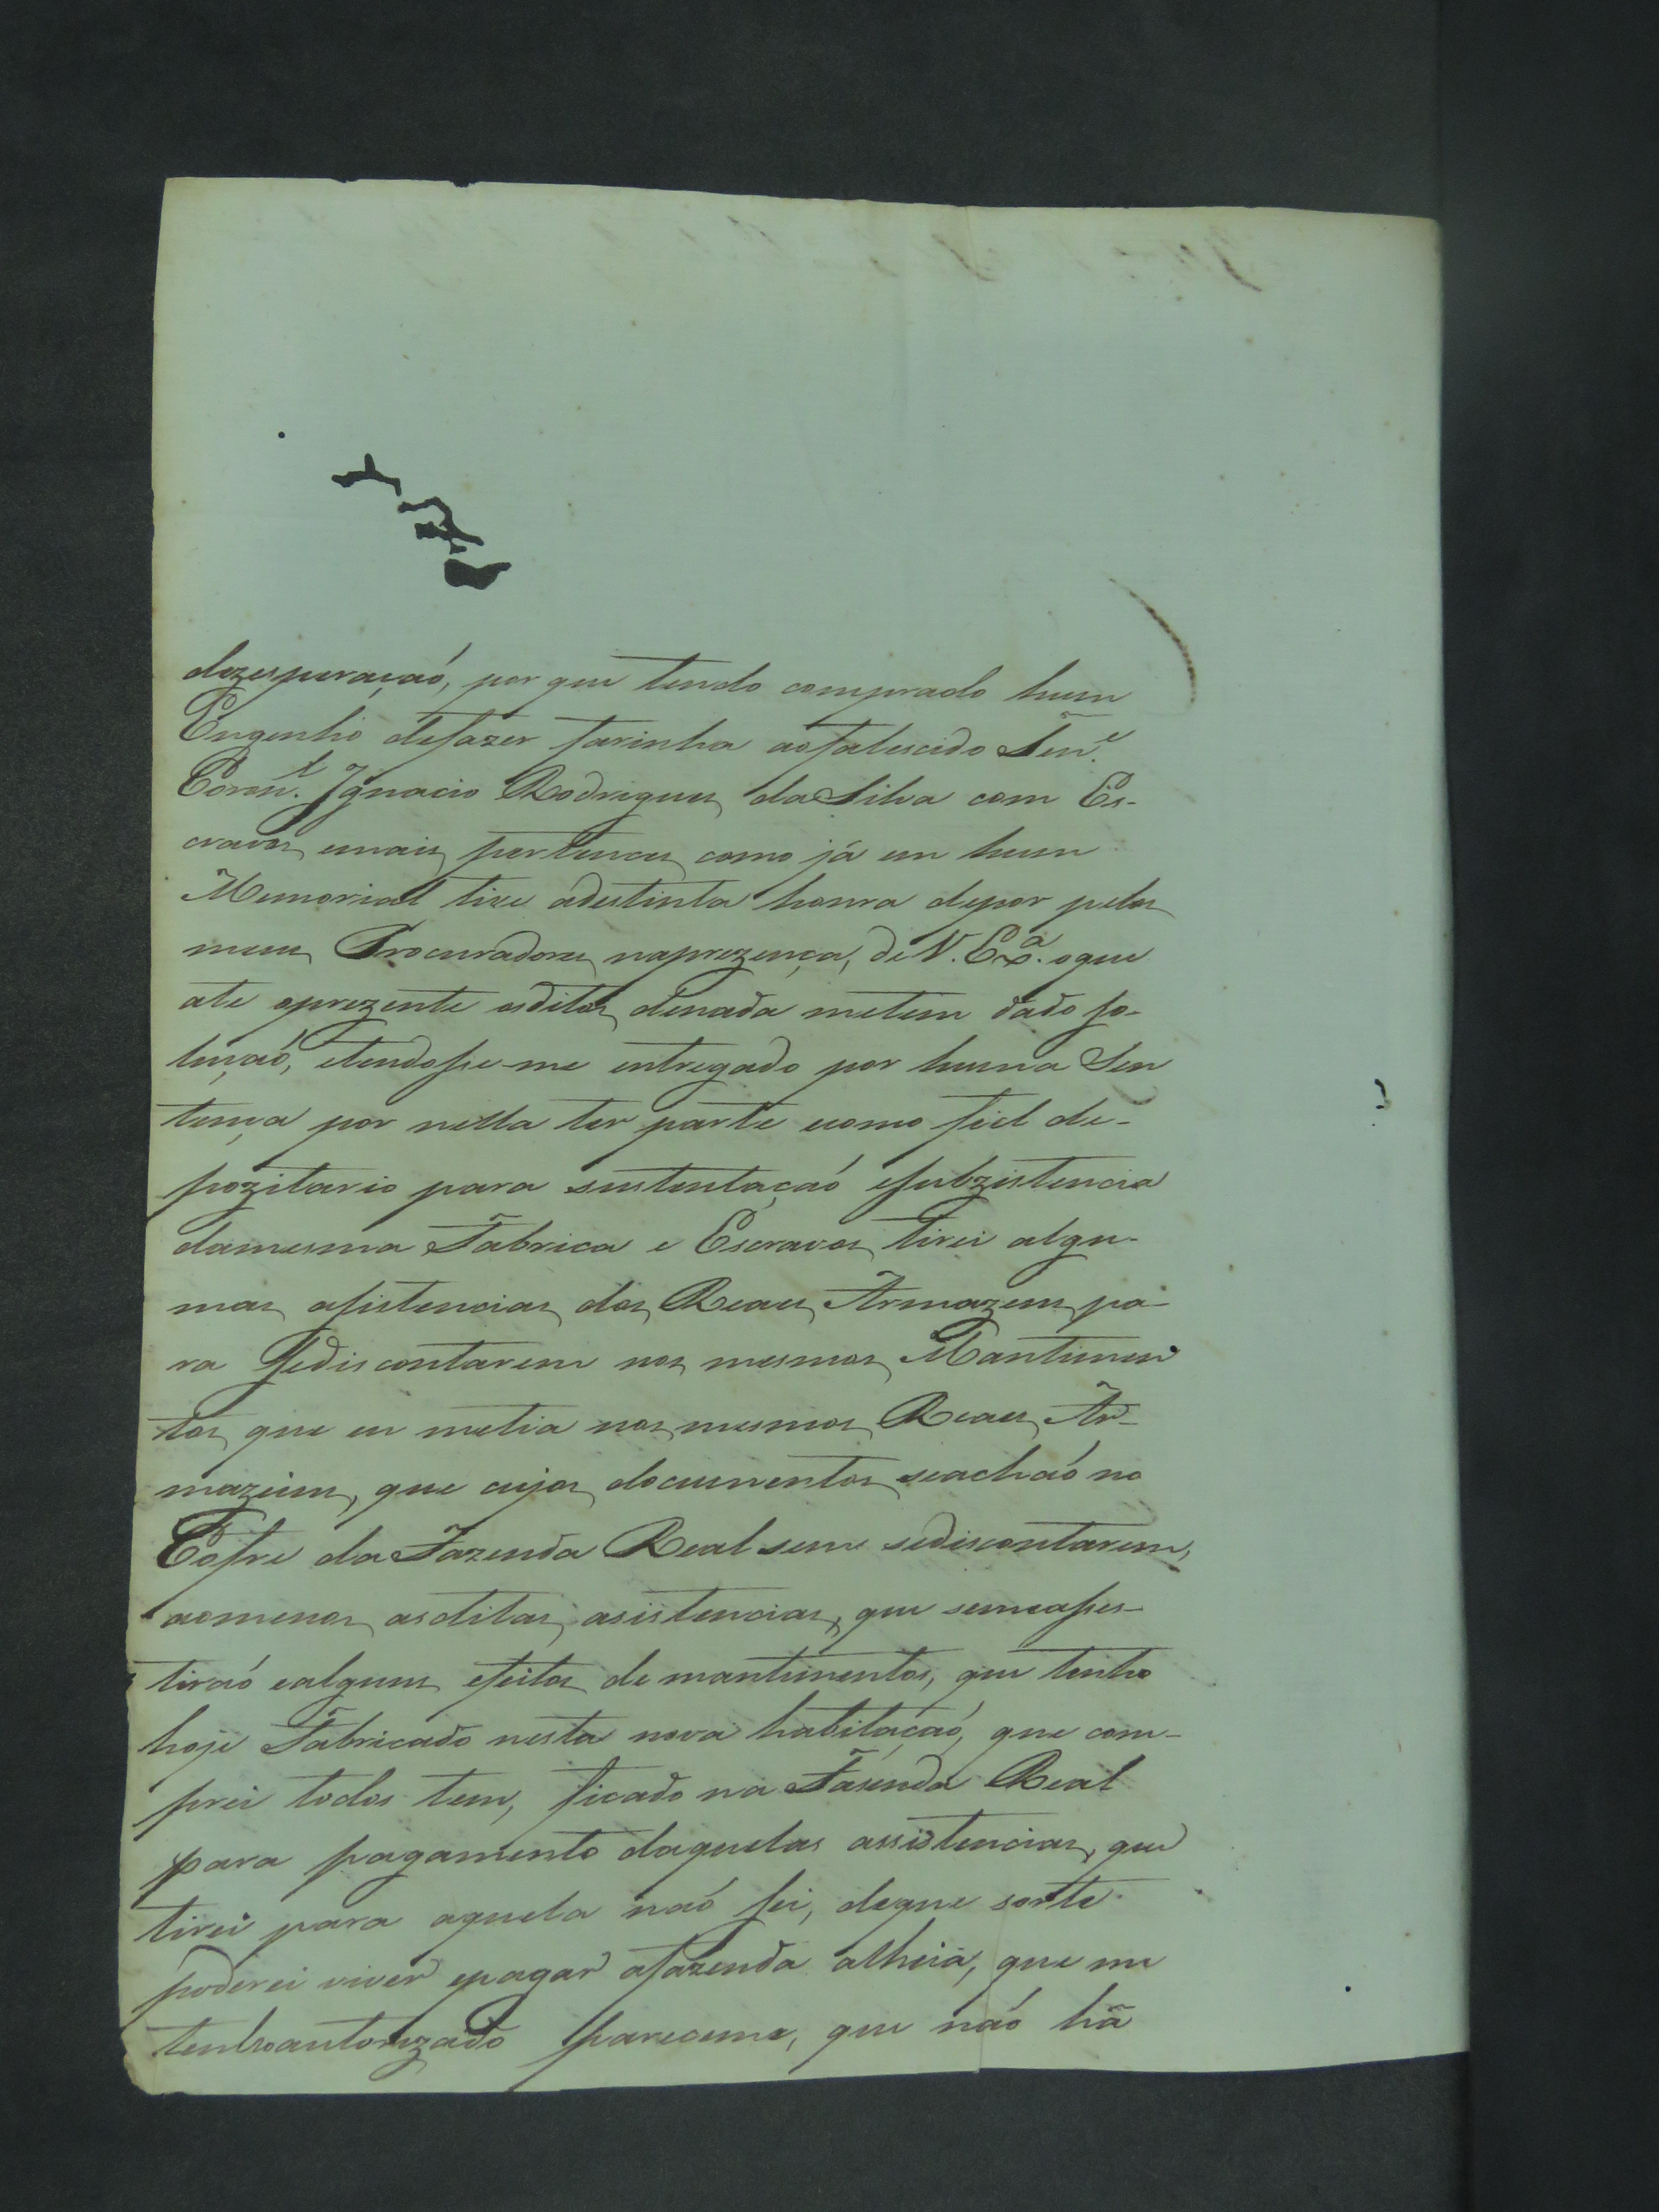 dezesperaçaó, por que tendo comprado hum
Engenho defazer farinha aofalescido Ten.e
Coron.l Ignacio Rodrigues da Silva com Es-
cravos emais pertences como já em hum
Memorial tive adestinta honra depor pelos
meus Procuradores naprezença, de V. Ex.a oque
ate oprezente osditos denada metem dado so-
luçaó, etendosse-me entregado por huma Sen
tença por nella ter parte ecomo fiel de-
pozitario para sustentaçaó esubzistencia
damesma Fabrica e Escravos tirei algu-
mas asistencias dos Reaes Armazens pa-
ra sediscontarem nos mesmos Mantimen
tos que eu metia nos mesmos Reaes Ar-
mazeins, que cujos documentos seachaó no
Cofre da Fazenda Real sem sediscontarem,
aomenos asditas asistencias, que semeasses-
tiraó ealguns efeitos de mantimentos, que tenho
hoje Fabricado nesta nova habitaçaó, que com-
prei todos tem, ficado na Fasenda Real
para pagamento daquelas assistencias, que
tirei para aquela naó sei, deque sorte
poderei viver epagar afazenda alheia, que me
tenhoautorizado pareceme, que naó há